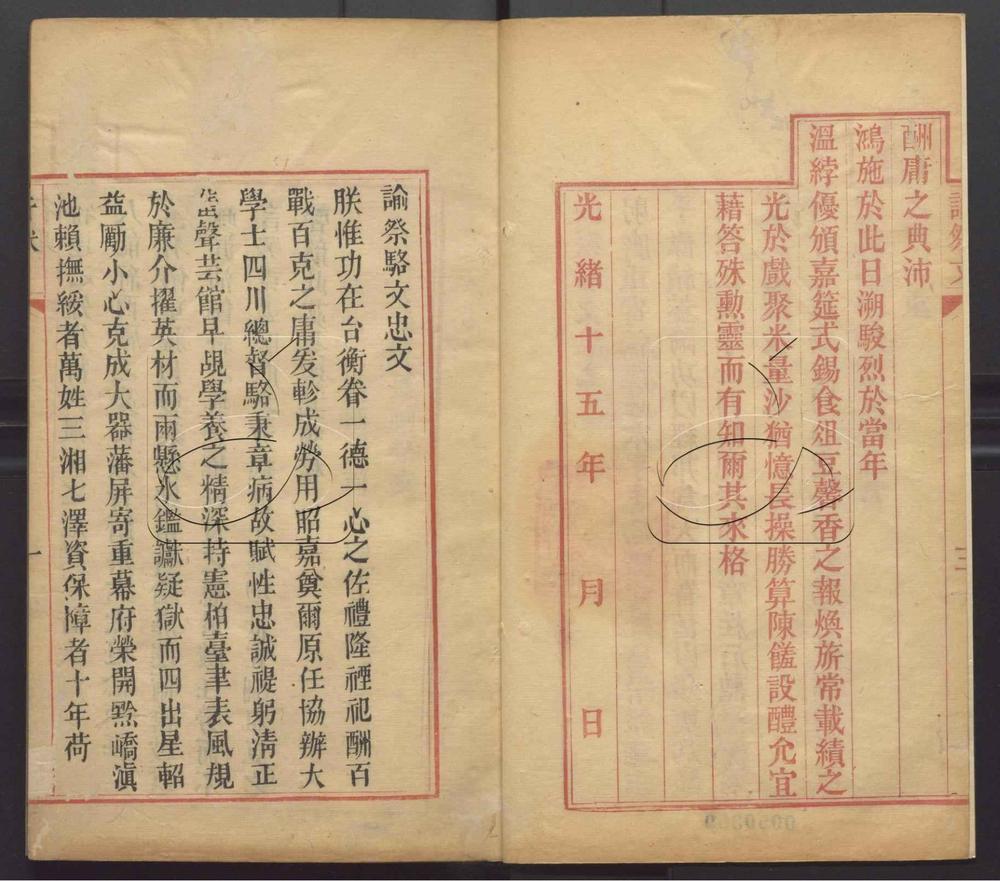 酬庸之典沛
鴻施於此日溯駿烈於當年
溫綍優頒嘉筵式錫食俎豆馨香之報煥旂常載績之
光於戲聚米量沙猶憶長操勝算陳饈設醴允宜
藉答殊勳靈而有知爾其來格
光緒十五年 月 日
諭祭駱文忠文
朕惟功在台衡眷一德一心之佐禮隆禋祀酬百
戰百克之庸发軫成勞用昭嘉奠爾原任協辦大
學士四川總督駱秉章病故賦性忠誠禔躬淸正
蜚聲芸館早覘學養之精深持憲柏臺聿表風規
於廉介擢英材而兩懸水鑑讞疑獄而四出星軺
益勵小心克成大器藩屏寄重幕府榮開黔嶠滇
池賴撫綏者萬姓三湘七澤資保障者十年荷
一